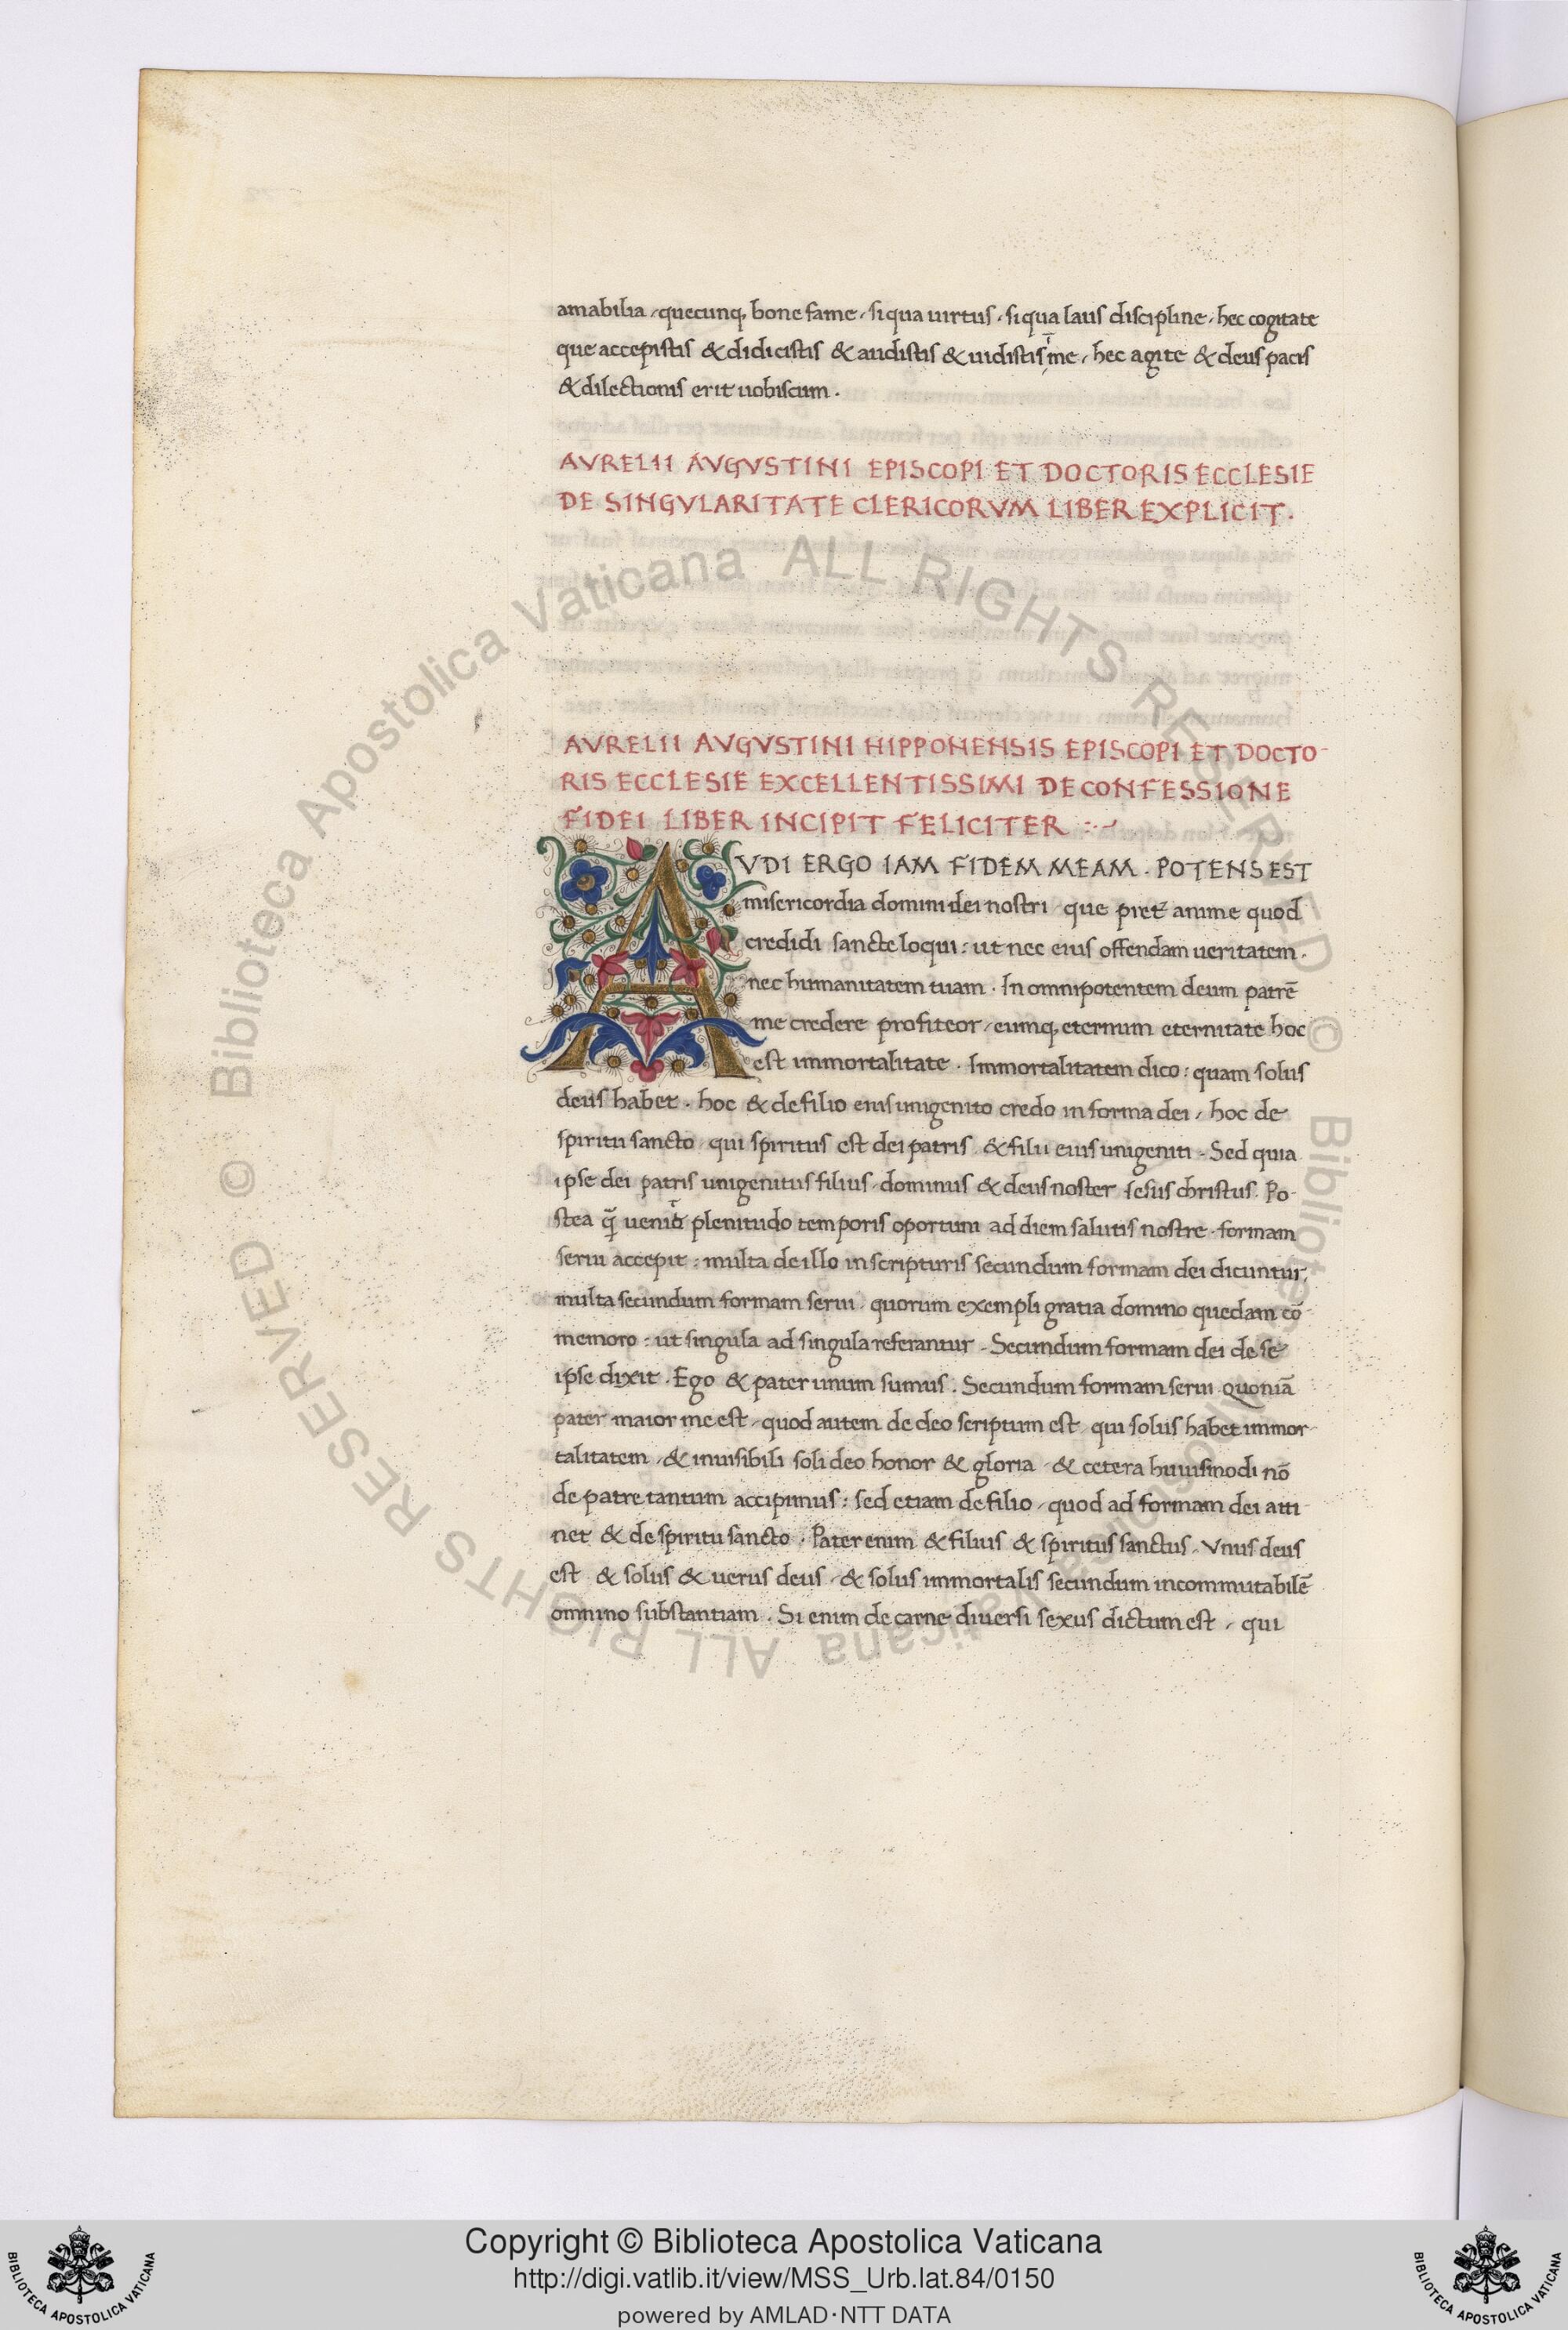 amabilia, quecunq, bone fame, si qua uirtus, si qua laus discipline, hec cogitate
que accepistis & didicistis & audistis & uidistis ī me, hec agite & deus pacis
& dilectionis erit uobiscum.
AVRELII AVGVSTINI EPISCOPI ET DOCTORIS ECCLESIE
DE SINGVLARITATE CLERICORVM LIBER EXPLICIT.
AVRELII AVGVSTINI HIPPONENSIS EPISCOPI ET DOCTO-
RIS ECCLESIE EXCELLENTISSIMI DE CONFESSIONE
FIDEI LIBER INCIPIT FELICITER :~
AVDI ERGO IAM FIDEM MEAM. POTENS EST
misericordia domini dei nostri que pret anime quod
credidi sancte loqui: ut nec eius offendam ueritatem.
nec humanitatem tuam. In omnipotentem deum patrē
me credere profiteor, eumq, eternum eternitate hoc
est immortalitate. Immortalitatem dico: quam solus
deus habet. hoc & de filio eius unigenito credo in forma dei, hoc de
spiritu sancto, qui spiritus est dei patris, & filii eius unigeniti. Sed quia
ipse dei patris unigenitus filius, dominus & deus noster iesus christus. Po-
stea q̄ uenit plenitudo temporis oportuni ad diem salutis nostre, formam
serui accepit: multa de illo in scripturis secundum formam dei dicuntur,
multa secundum formam serui, quorum exempli gratia domino quedam cō-
memoro: ut singula ad singula referantur. Secundum formam dei de se
ipse dixit. Ego & pater unum sumus. Secundum formam serui quoniā
pater maior me est, quod autem de deo scriptum est, qui solus habet immor-
talitatem, & inuisibili soli deo honor & gloria, & cetera huiusmodi nō
de patre tantum accipimus: sed etiam de filio, quod ad formam dei atti-
net & de spiritu sancto. Pater enim & filius & spiritus sanctus. Vnus deus
est & solus & uerus deus, & solus immortalis secundum incommutabilē
omnino substantiam. Si enim de carne diuersi sexus dictum est, qui
Copyright © Biblioteca Apostolica Vaticana
http://digi.vatlib.it/view/MSS_Urb.lat.84/0150
powered by AMLAD·NTT DATA
BIBLIOTECA APOSTOLICA VATICANA
BIBLIOTECA APOSTOLICA VATICANA
© Biblioteca Apostolica Vaticana ALL RIGHTS RESERVED
© Biblioteca Apostolica Vaticana ALL RIGHTS RESERVED